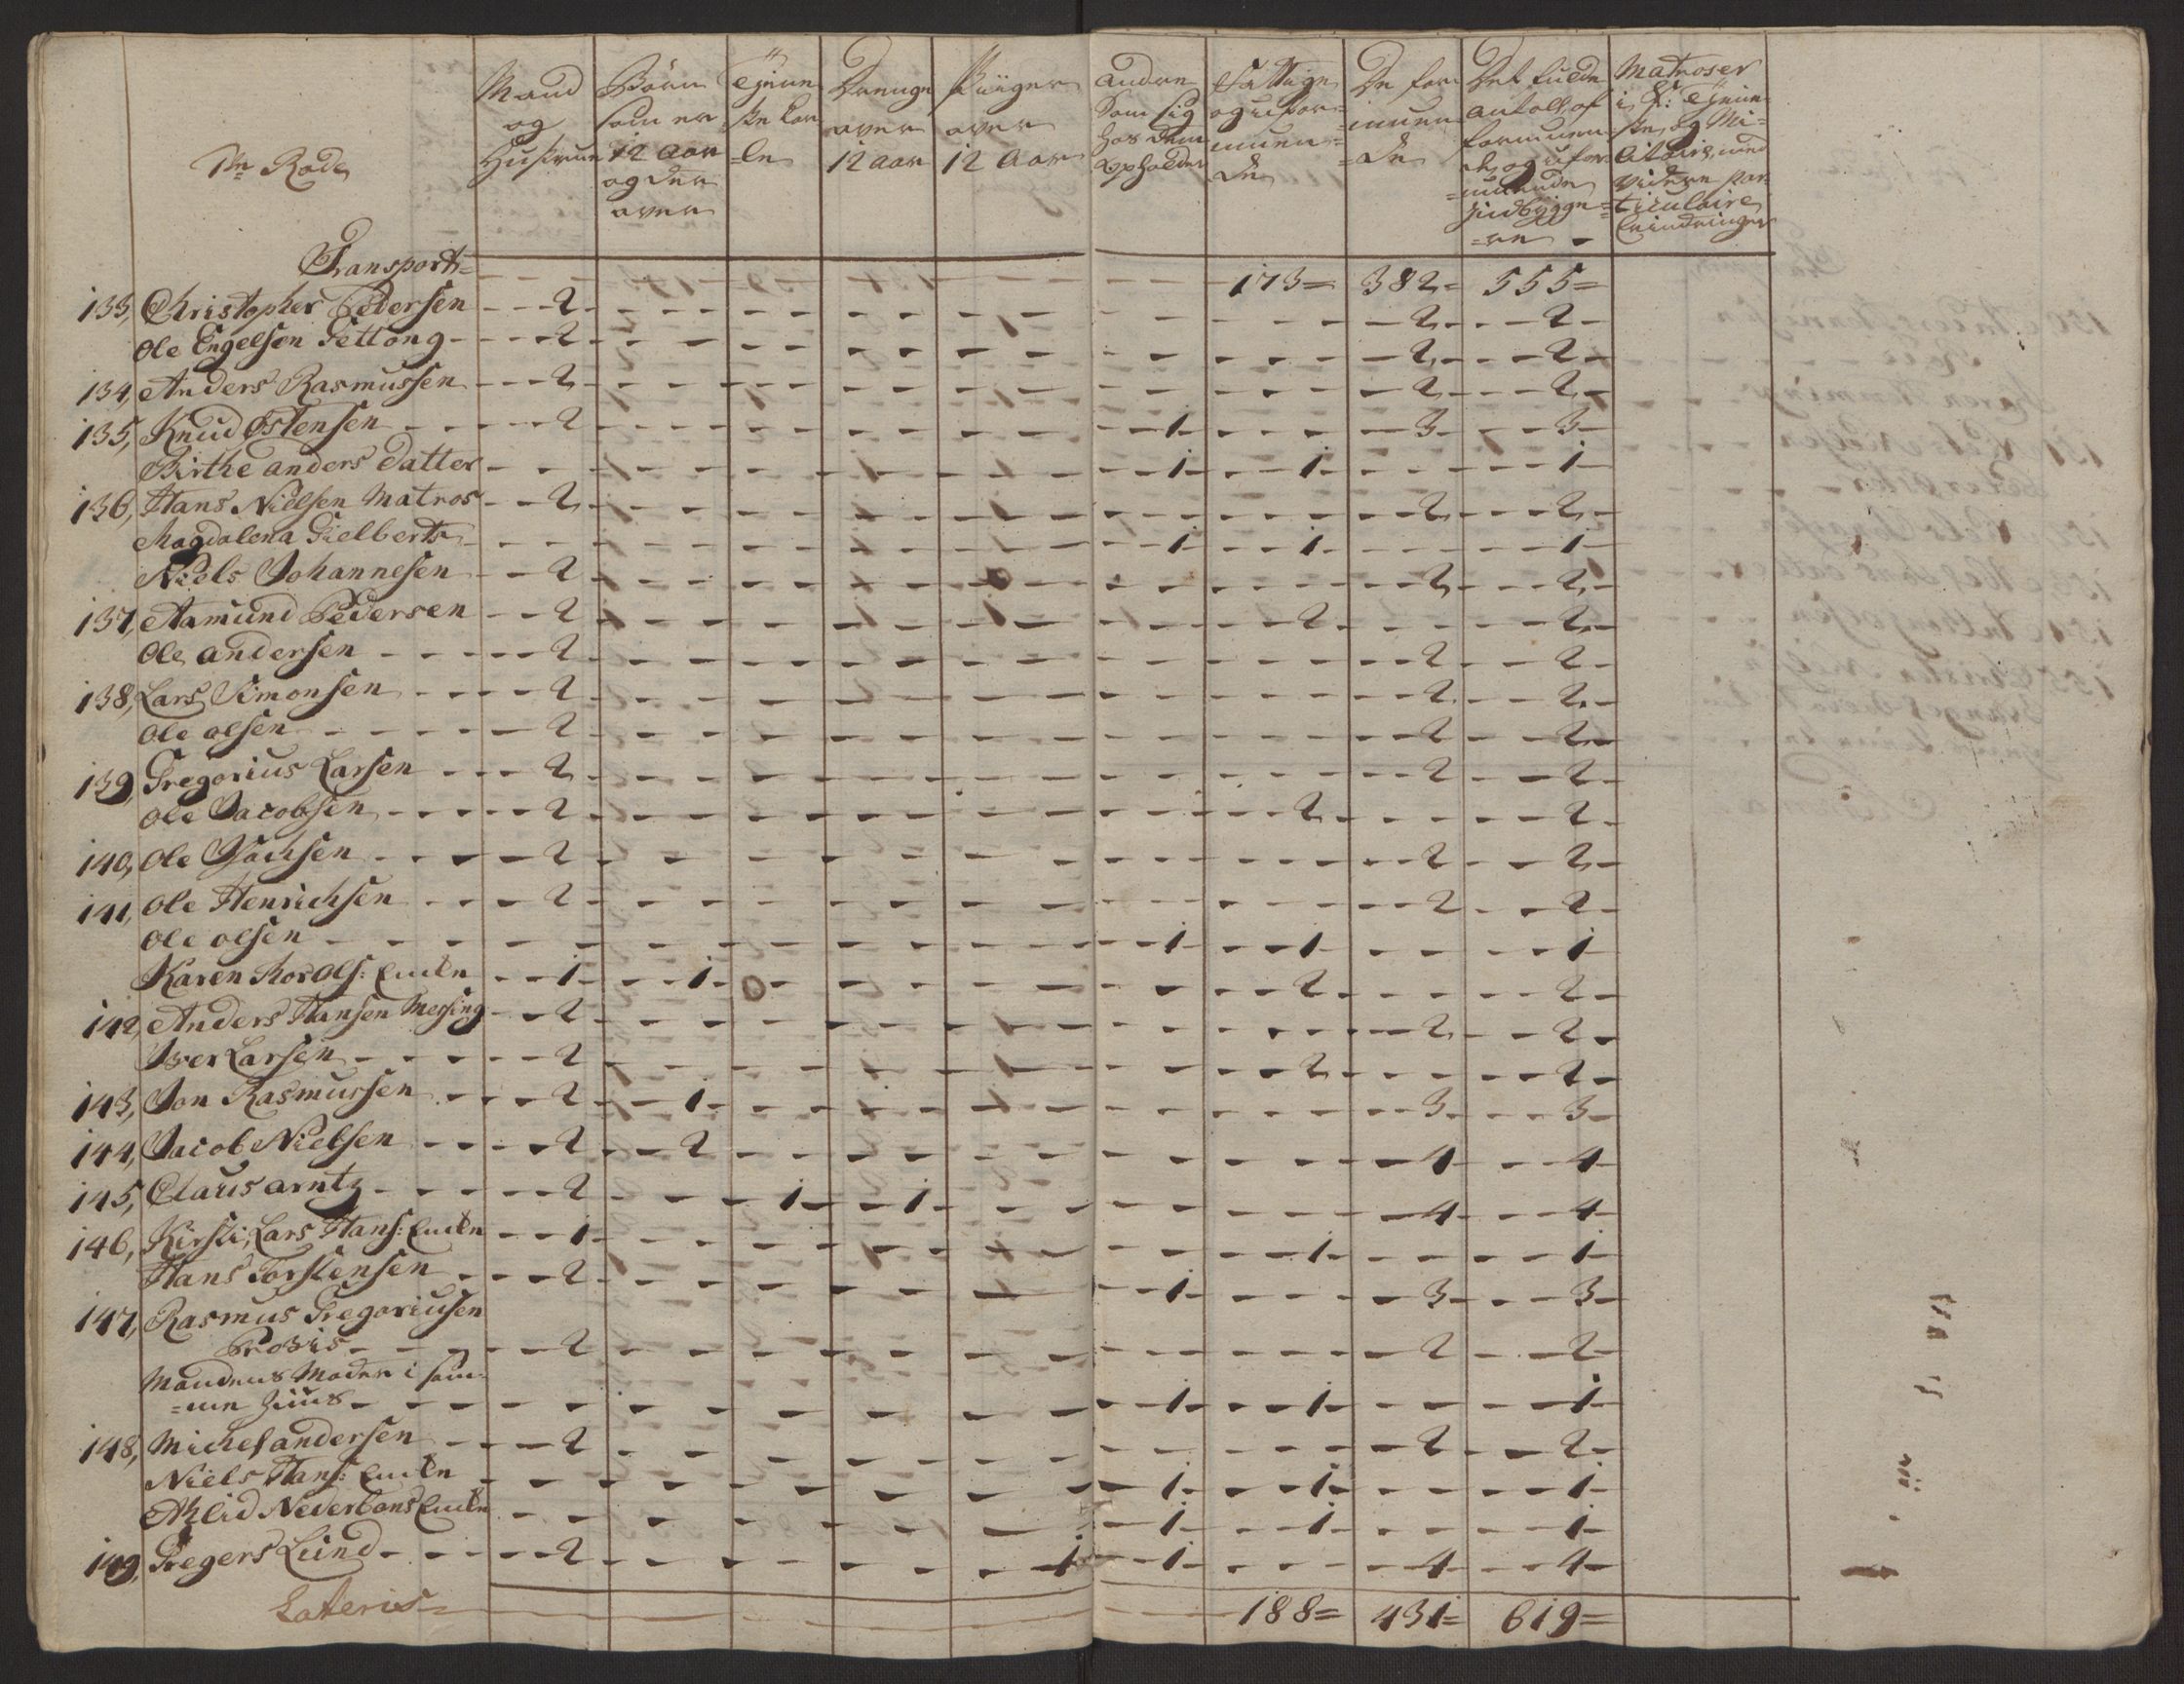 1ste Rode
Mand og Hustrue
Börn som er 12 Aar og der over
Tienne ste Kar le
Drenge over 12 aar
Piiger over 12 Aar
andre Som sig hos dem opholder
Fattige og ufor= muen= de
De for= muen =de
Det fulde antall af formuen de og ufor =muende Indbÿgge= =re
Matroser i K: Tieniste, og Militaire, med videre particulaire Erindringer
Transport= 173= 382= 555=
133, Christopher Pedersen 2 2 2
Ole Engelsen Tettong 2 2 2
134, Anders Rasmussen 2 2 2
135, Knud Østensen 2 1 3 3
Birthe anders datter 1 1 1
136, Hans Nielsen Matros 2 2 2
Magdalena Gielberts 1 1 1
Niels Johannesen 2 2 2
137, Aamund Pedersen 2 2 2
Ole andersen 2 2 2
138, Lars Simonsen 2 2 2
Ole olsen 2 2 2
139, Gregorius Larsen 2 2 2
Ole Jacobsen 2 2 2
140, Ole 2 2 2
141, Ole Henrichsen 2 2 2
Ole olsen 1 1 1
Karen Ols: Enken 1 1 2 2
142, Anders Hansen Messing 2 2 2
Iver Larsen 2 2 2
143, Jon Rasmussen 2 1 3 3
144, Jacob Nielsen 2 2 4 4
145, Claus arntz 2 1 1 4 4
146, Kirsti, Lars Hans: Enken 1 1 1
Hans Torstensen 2 1 3 3
147, Rasmus Gregoriusen
Provis 2 2 2
Mandens Moder i sam=
=me Huus 1 1 1
148, Michel andersen 2 2 2
Niels Hans: Enken 1 1 1
Nederbans Enken 1 1 1
149, Gregers Lund 2 1 1 4 4
Lateris= 188= 431= 619=